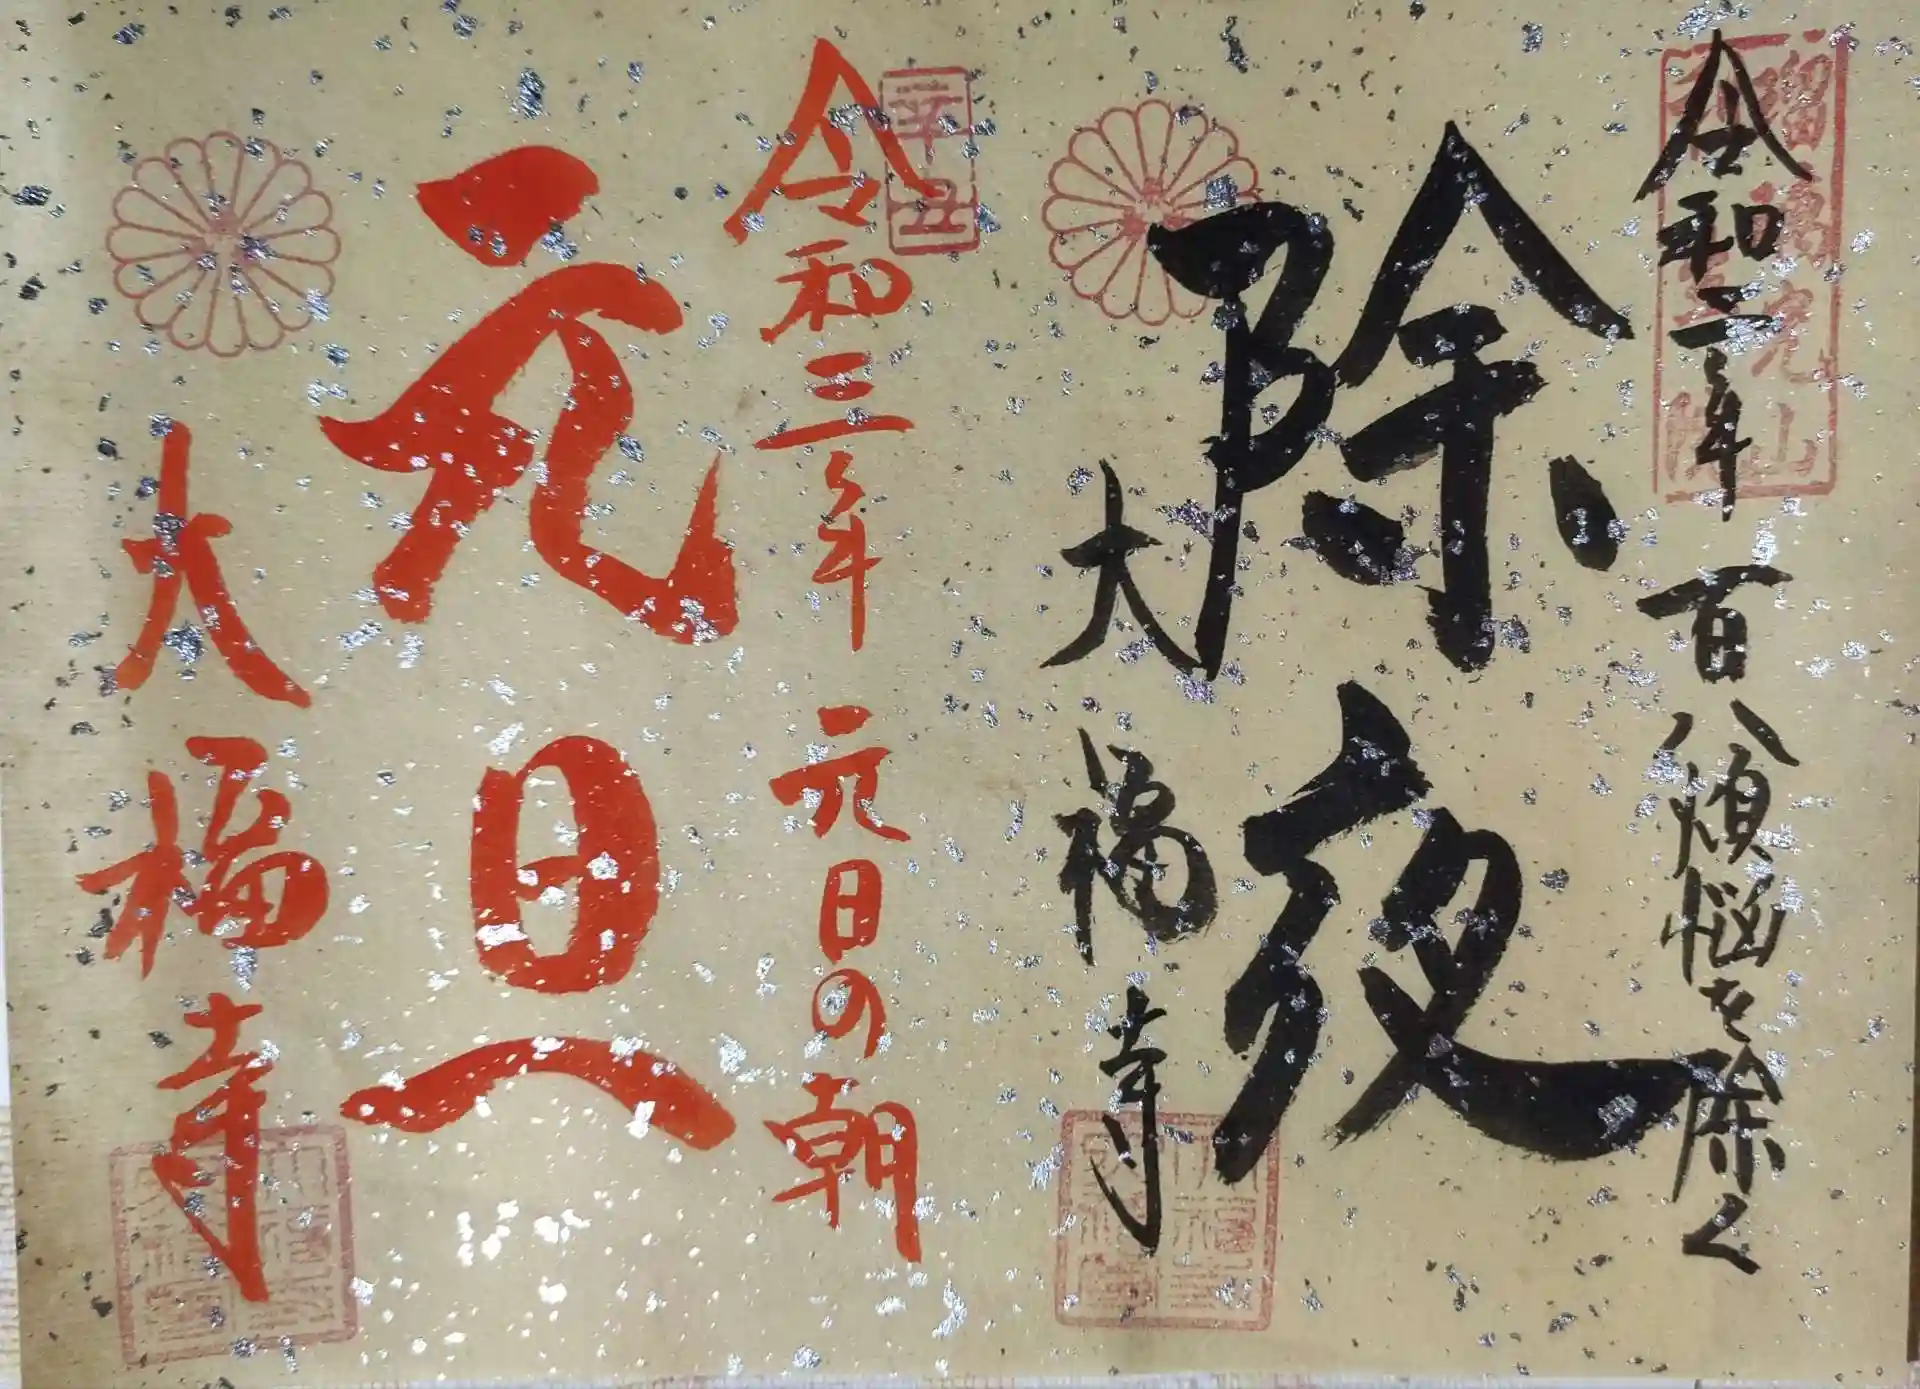 令和二年 百八煩悩を除く
除夜
大福寺
令和三年 元日の朝
辛丑
元日
大福寺